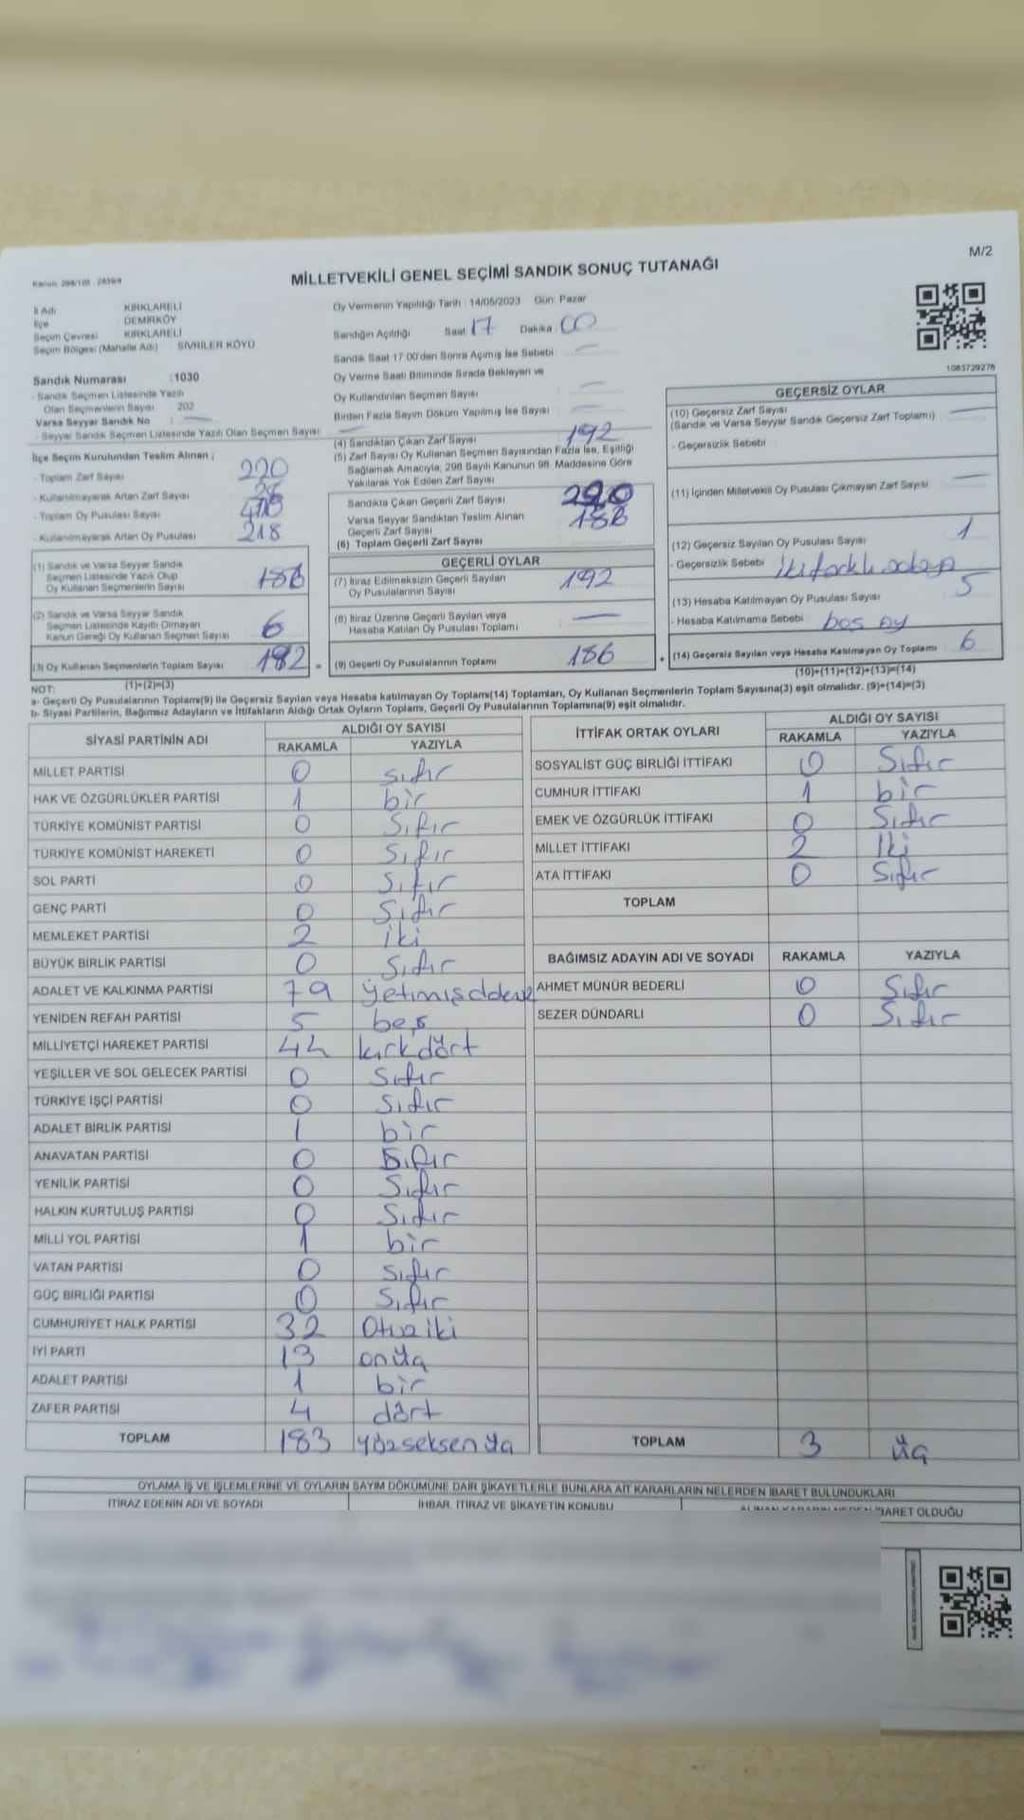 M/2
MİLLETVEKİLİ GENEL SEÇİMİ SANDIK SONUÇ TUTANAĞI
İl Adı KIRKLARELİ
İlçe DEMİRKÖY
Seçim Çevresi KIRKLARELİ
Seçim Bölgesi (Mahalle Adı) SİVRİLER KÖYÜ
Oy Vermenin Yapıldığı Tarih : 14/05/2023 Gün: Pazar
Sandığın Açıldığı Saat 17 Dakika 00
Sandık Saat 17:00'den Sonra Açımış İse Sebebi
Oy Verme Saati Bitiminde Sırada Bekleyen ve
Oy Kullandırılan Seçmen Sayısı
Birden Fazla Sayım Döküm Yapılmış İse Sayısı
1083729276
Sandık Numarası : 1030
- Sandık Seçmen Listesinde Yazılı
Olan Seçmenlerin Sayısı 202
Varsa Seyyar Sandık No :
- Seyyar Sandık Seçmen Listesinde Yazılı Olan Seçmen Sayısı
İlçe Seçim Kurulundan Teslim Alınan ;
- Toplam Zarf Sayısı 220
- Kullanılmayarak Artan Zarf Sayısı
- Toplam Oy Pusulası Sayısı
- Kullanılmayarak Artan Oy Pusulası 218
(1) Sandık ve Varsa Seyyar Sandık
Seçmen Listesinde Yazılı Olup
Oy Kullanan Seçmenlerin Sayısı 186
(2) Sandık ve Varsa Seyyar Sandık
Seçmen Listesinde Kayıtlı Olmayan
Kanun Gereği Oy Kullanan Seçmen Sayısı 6
(3) Oy Kullanan Seçmenlerin Toplam Sayısı 192 =
(1)+(2)=(3)
(4) Sandıktan Çıkan Zarf Sayısı 192
(5) Zarf Sayısı Oy Kullanan Seçmen Sayısından Fazla İse, Eşitliği
Sağlamak Amacıyla, 298 Sayılı Kanunun 98. Maddesine Göre
Yakılarak Yok Edilen Zarf Sayısı
Sandıkta Çıkan Geçerli Zarf Sayısı
Varsa Seyyar Sandıktan Teslim Alınan
Geçerli Zarf Sayısı
(6) Toplam Geçerli Zarf Sayısı
GEÇERLİ OYLAR
(7) İtiraz Edilmeksizin Geçerli Sayılan
Oy Pusulalarının Sayısı 192
(8) İtiraz Üzerine Geçerli Sayılan veya
Hesaba Katılan Oy Pusulası Toplamı
(9) Geçerli Oy Pusulalarının Toplamı 186 +
GEÇERSİZ OYLAR
(10) Geçersiz Zarf Sayısı
(Sandık ve Varsa Seyyar Sandık Geçersiz Zarf Toplamı)
- Geçersizlik Sebebi
(11) İçinden Milletvekili Oy Pusulası Çıkmayan Zarf Sayısı
(12) Geçersiz Sayılan Oy Pusulası Sayısı 1
- Geçersizlik Sebebi iki farklı adaya
(13) Hesaba Katılmayan Oy Pusulası Sayısı 5
- Hesaba Katılmama Sebebi boş oy
(14) Geçersiz Sayılan veya Hesaba Katılmayan Oy Toplamı 6
(10)+(11)+(12)+(13)=(14)
NOT:
a- Geçerli Oy Pusulalarının Toplamı(9) ile Geçersiz Sayılan veya Hesaba katılmayan Oy Toplamı(14) Toplamları, Oy Kullanan Seçmenlerin Toplam Sayısına(3) eşit olmalıdır. (9)+(14)=(3)
b- Siyasi Partilerin, Bağımsız Adayların ve İttifakların Aldığı Ortak Oyların Toplamı, Geçerli Oy Pusulalarının Toplamına(9) eşit olmalıdır.
SİYASİ PARTİNİN ADI ALDIĞI OY SAYISI
RAKAMLA YAZIYLA
MİLLET PARTİSİ 0 sıfır
HAK VE ÖZGÜRLÜKLER PARTİSİ 1 bir
TÜRKİYE KOMÜNİST PARTİSİ 0 Sıfır
TÜRKİYE KOMÜNİST HAREKETİ 0 Sıfır
SOL PARTİ 0 Sıfır
GENÇ PARTİ 0 Sıfır
MEMLEKET PARTİSİ 2 iki
BÜYÜK BİRLİK PARTİSİ 0 Sıfır
ADALET VE KALKINMA PARTİSİ 79
YENİDEN REFAH PARTİSİ 5 beş
MİLLİYETÇİ HAREKET PARTİSİ 44 kırkdört
YEŞİLLER VE SOL GELECEK PARTİSİ 0 Sıfır
TÜRKİYE İŞÇİ PARTİSİ 0 Sıfır
ADALET BİRLİK PARTİSİ 1 bir
ANAVATAN PARTİSİ 0 Sıfır
YENİLİK PARTİSİ 0 Sıfır
HALKIN KURTULUŞ PARTİSİ 0 Sıfır
MİLLİ YOL PARTİSİ 1 bir
VATAN PARTİSİ 0 Sıfır
GÜÇ BİRLİĞİ PARTİSİ 0 Sıfır
CUMHURİYET HALK PARTİSİ 32 Otuziki
İYİ PARTİ 13 onüç
ADALET PARTİSİ 1 bir
ZAFER PARTİSİ 4 dört
TOPLAM 183 yüzseksenüç
İTTİFAK ORTAK OYLARI ALDIĞI OY SAYISI
RAKAMLA YAZIYLA
SOSYALİST GÜÇ BİRLİĞİ İTTİFAKI 0 Sıfır
CUMHUR İTTİFAKI 1 bir
EMEK VE ÖZGÜRLÜK İTTİFAKI 0 Sıfır
MİLLET İTTİFAKI 2 İki
ATA İTTİFAKI 0 Sıfır
TOPLAM
BAĞIMSIZ ADAYIN ADI VE SOYADI RAKAMLA YAZIYLA
AHMET MÜNÜR BEDERLİ 0 Sıfır
SEZER DÜNDARLI 0 Sıfır
TOPLAM 3 üç
OYLAMA İŞ VE İŞLEMLERİNE VE OYLARIN SAYIM DÖKÜMÜNE DAİR ŞİKAYETLERLE BUNLARA AİT KARARLARIN NELERDEN İBARET BULUNDUKLARI
İTİRAZ EDENİN ADI VE SOYADI İHBAR, İTİRAZ VE ŞİKAYETİN KONUSU OLDUĞU